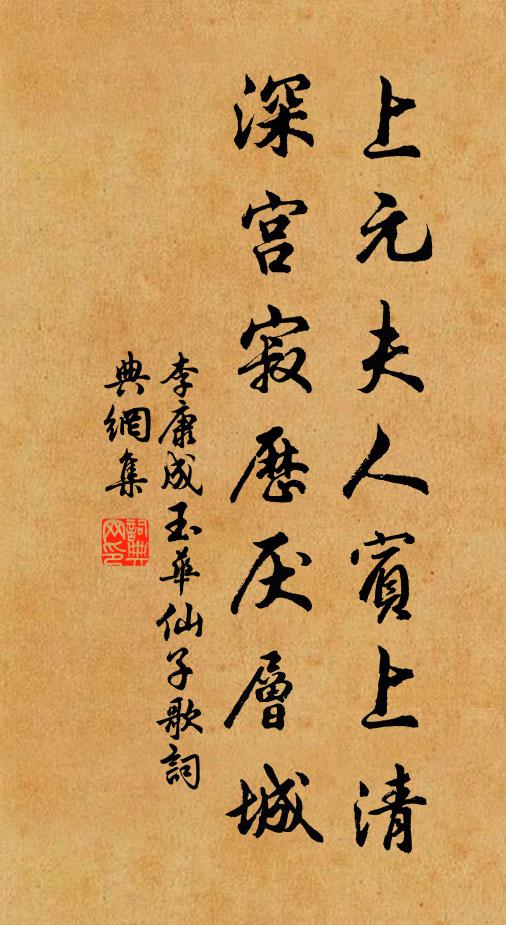 上元夫人賓上清
深宮寂歷厌層城
李康成玉華仙子歌詞
典網集
詞典
网印